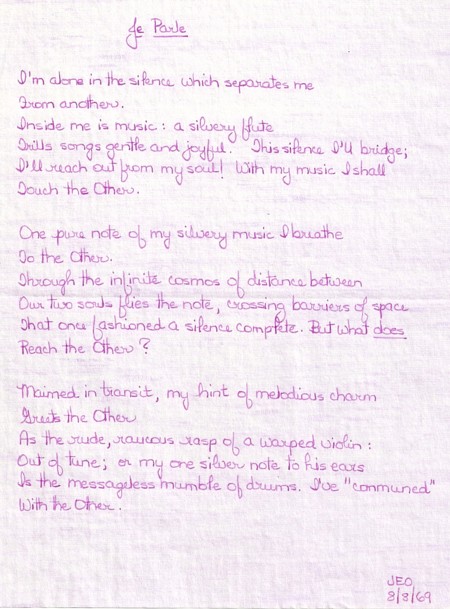 Je Parle
I'm alone in the silence which separates me
From another.
Inside me is music: a silvery flute
Trills songs gentle and joyful. This silence I'll bridge;
I'll reach out from my soul! With my music I shall
Touch the Other.
One pure note of my silvery music I breathe
To the Other.
Through the infinite cosmos of distance between
Our two souls flies the note, crossing barriers of space
That once fashioned a silence complete. But what does
Reach the Other?
Maimed in transit, my hint of melodious charm
Greets the Other
As the rude, raucous rasp of a warped violin:
Out of tune; or my one silver note to his ears
Is the messageless mumble of drums. I've "communed"
With the Other.
JEO
8/8/69